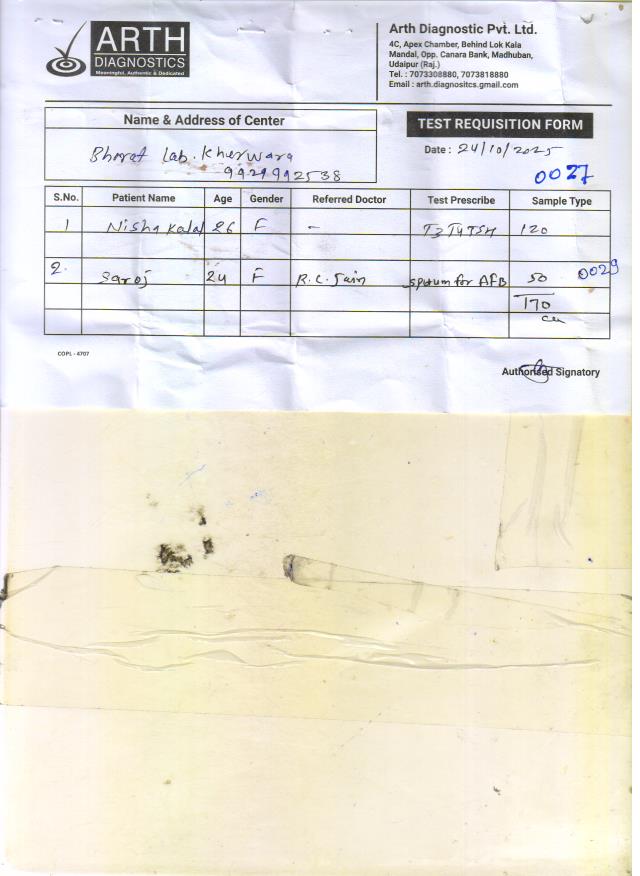 ARTH
DIAGNOSTICS
Meaningful, Authentic & Dedicated
Arth Diagnostic Pvt. Ltd.
4C, Apex Chamber, Behind Lok Kala
Mandal, Opp. Canara Bank, Madhuban,
Udaipur (Raj.)
Tel. : 7073308880, 7073818880
Email : arth.diagnositcs.gmail.com
Name & Address of Center
TEST REQUISITION FORM
Bharat Lab. Kherwara
9929992538
Date : 24/10/2025
0027
S.No. Patient Name Age Gender Referred Doctor Test Prescribe Sample Type
1 Nisha Kalal 26 F - T3 T4 TSH 120
2. Saroj 24 F R.C. Jain sputum for AFB 50 0029
170
COPL - 4707
Authorised Signatory